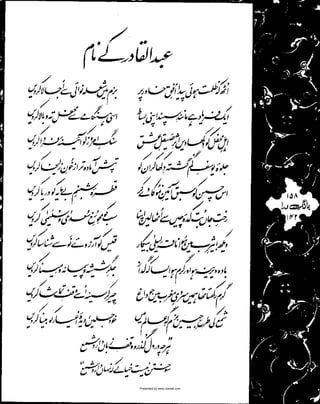 عبدالقادر کے نام
اٹھ کہ ظلمت ہوئی پیدا افقِ خاور پر بزم میں شعلہ نوائی سے اجالا کر دیں
ایک فریاد ہے مانندِ سپند اپنی بساط اسی ہنگامے سے محفل تہ و بالا کر دیں
اہلِ محفل کو دکھا دیں اثرِ صیقلِ عشق سنگِ امروز کو آئینۂ فردا کر دیں
جلوۂ یوسفِ گم گشتہ دکھا کر ان کو تپش آمادہ تر از خونِ زلیخا کر دیں
اس چمن کو سبق آئینِ نمو کا دے کر قطرۂ شبنمِ بے مایہ کو دریا کر دیں
رختِ جاں بتکدۂ چیں سے اٹھا لیں اپنا سب کو محوِ رخِ سعدیٰ و سلیمیٰ کر دیں
دیکھ! یثرب میں ہوا ناقۂ لیلیٰ بیکار قیس کو آرزوئے نو سے شناسا کر دیں
بادہ دیرینہ ہو اور گرم ہو ایسا کہ گداز جگرِ شیشہ و پیمانہ و مینا کر دیں
گرم رکھتا تھا ہمیں سردیِ مغرب میں جو داغ چیر کر سینہ اسے وقفِ تماشا کر دیں
شمع کی طرح جییں بزم گہِ عالم میں خود جلیں، دیدۂ اغیار کو بینا کر دیں
ہر چہ در دل گذرد وقفِ زباں دارد شمع
سوختن نیست خیالے کہ نہاں دارد شمع
۱۵۸
بانگِ درا
۱۴۲